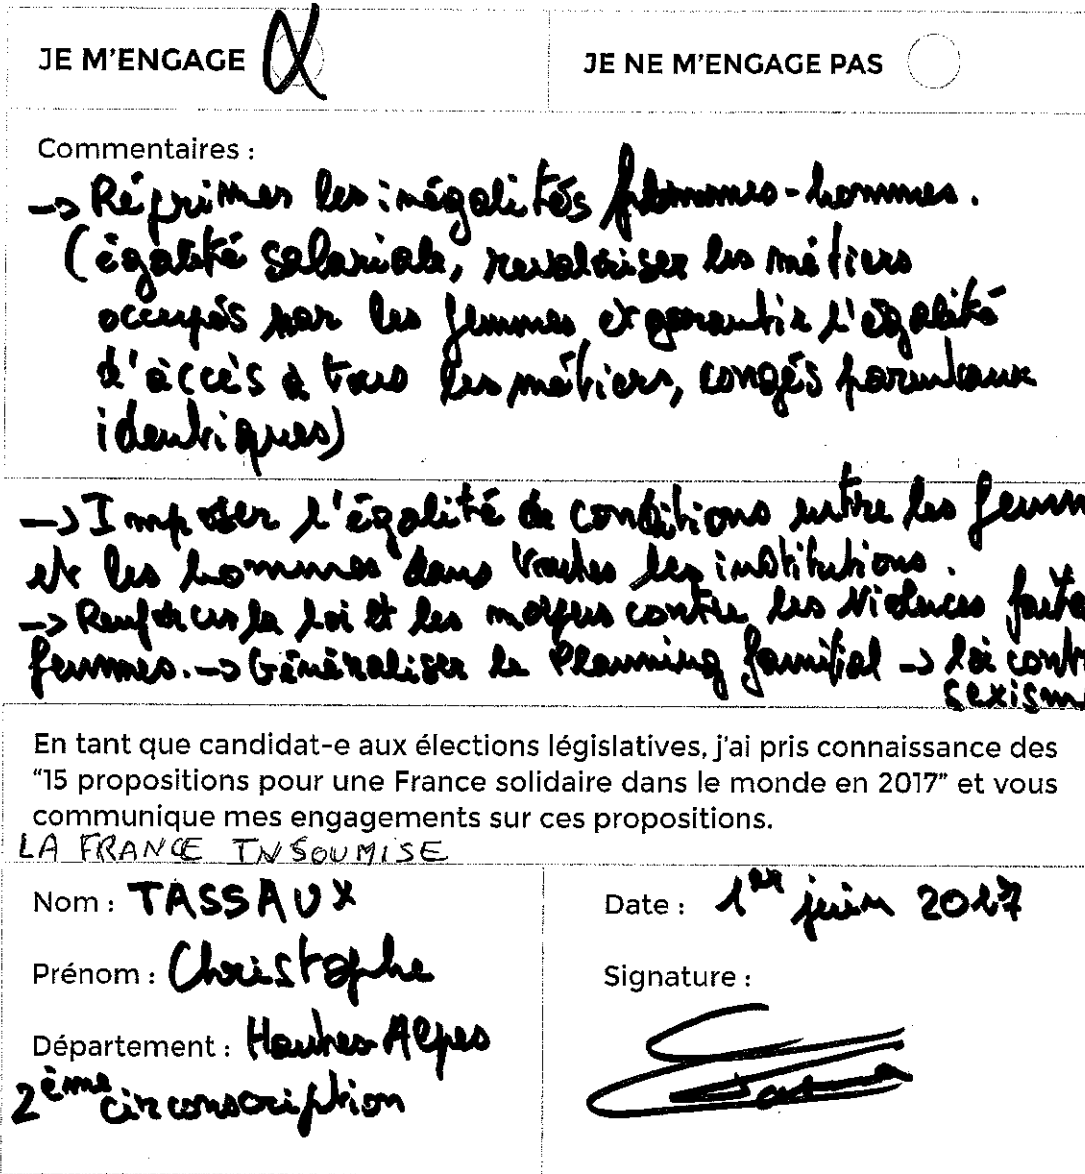 JE M'ENGAGE X
JE NE M'ENGAGE PAS
Commentaires :
-> Réprimer les inégalités femmes-hommes.
(égalité salariale, revaloriser les métiers
occupés par les femmes et garantir l'égalité
d'accès à tous les métiers, congés parentaux
identiques)
-> Imposer l'égalité de conditions entre les femm
et les hommes dans toutes les institutions.
-> Renforcer la loi et les moyens contre les violences faite
femmes. -> Généraliser le Planning familial -> loi contr
sexisme
En tant que candidat-e aux élections législatives, j'ai pris connaissance des
"15 propositions pour une France solidaire dans le monde en 2017" et vous
communique mes engagements sur ces propositions.
LA FRANCE INSOUMISE
Nom : TASSAUX
Prénom : Christophe
Département : Hautes Alpes
2ème circonscription
Date : 1er juin 2017
Signature :